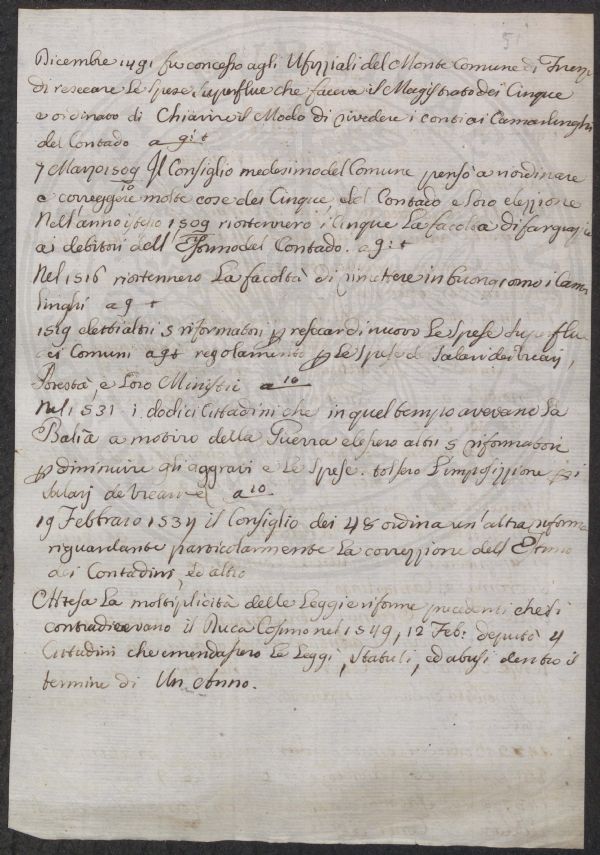 Dicembre 1491 fu concesso agli Ufizziali del Monte Comune di Firenze
di resecare Le Spese superflue che faceva il Magistrato dei Cinque
e ordinato di Chiarire il Modo di rivedere i conti ai Camarlenghi
del Contado a 9:
7 Marzo 1509 Il Consiglio medesimo del Comune pensò a riordinare
e correggere molte cose dei Cinque, del Contado e loro elezzione
Nell'anno istesso 1509 riottennero i Cinque La facoltà di far grazie
ai debitori dell' del Contado. a 9:
Nel 1516 riottennero La facoltà di rimettere in buon giorno i Camar
linghi a 9
1519 eletti altri 5 riformatori p resecar di nuovo Le Spese Superflue
dei Comuni a 9 regolamento p Le Spese de Salari dei Vicarj,
Potestà, e Loro Ministri a 10
Nel 1531 i dodici Cittadini che in quel tempo avevano La
Balìa a motivo della Guerra elessero altri 5 riformatori
p diminuire gli aggravi e Le Spese. tolsero L'imposizzione p i
Salarj de Vicari a 10
19 Febbraro 1534 il Consiglio dei 48 ordina un'altra riforma
riguardante particolarmente La correzzione dell'
dei Contadini, ed altro
Attesa La moltiplicità delle Leggi e riforme precedenti che si
contradicevano il Duca Cosimo nel 1549, 12 Feb: deputò 4
Cittadini che emendassero Le Leggi, Statuti, ed abusi dentro il
termine di Un Anno.